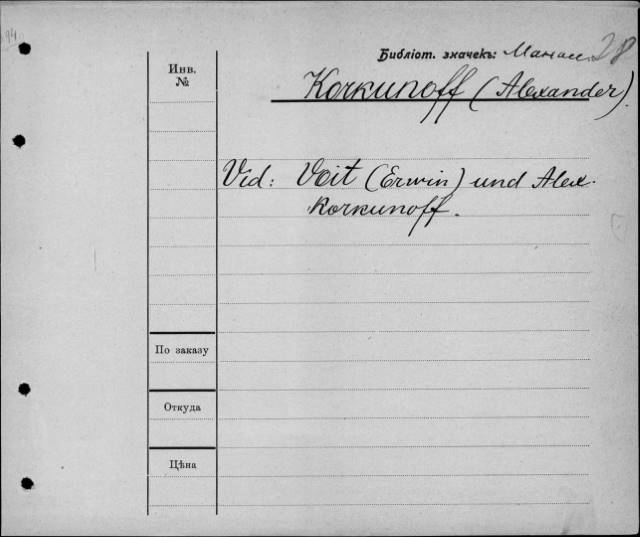 94
Библіот. значекъ: 28
Инв.
№
Korkunoff (Alexander).
Vid: Voit (Erwin) und Alex.
Korkunoff.
По заказу
Откуда
Цѣна